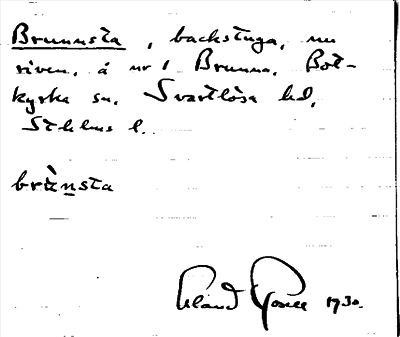 Brunnsta, backstuga, nu
riven, å nr 1 Brunna. Bot-
kyrka sn. Svartlösa hd,
Sthlms l.
brùn̲sta
Erland Rosell 1930.